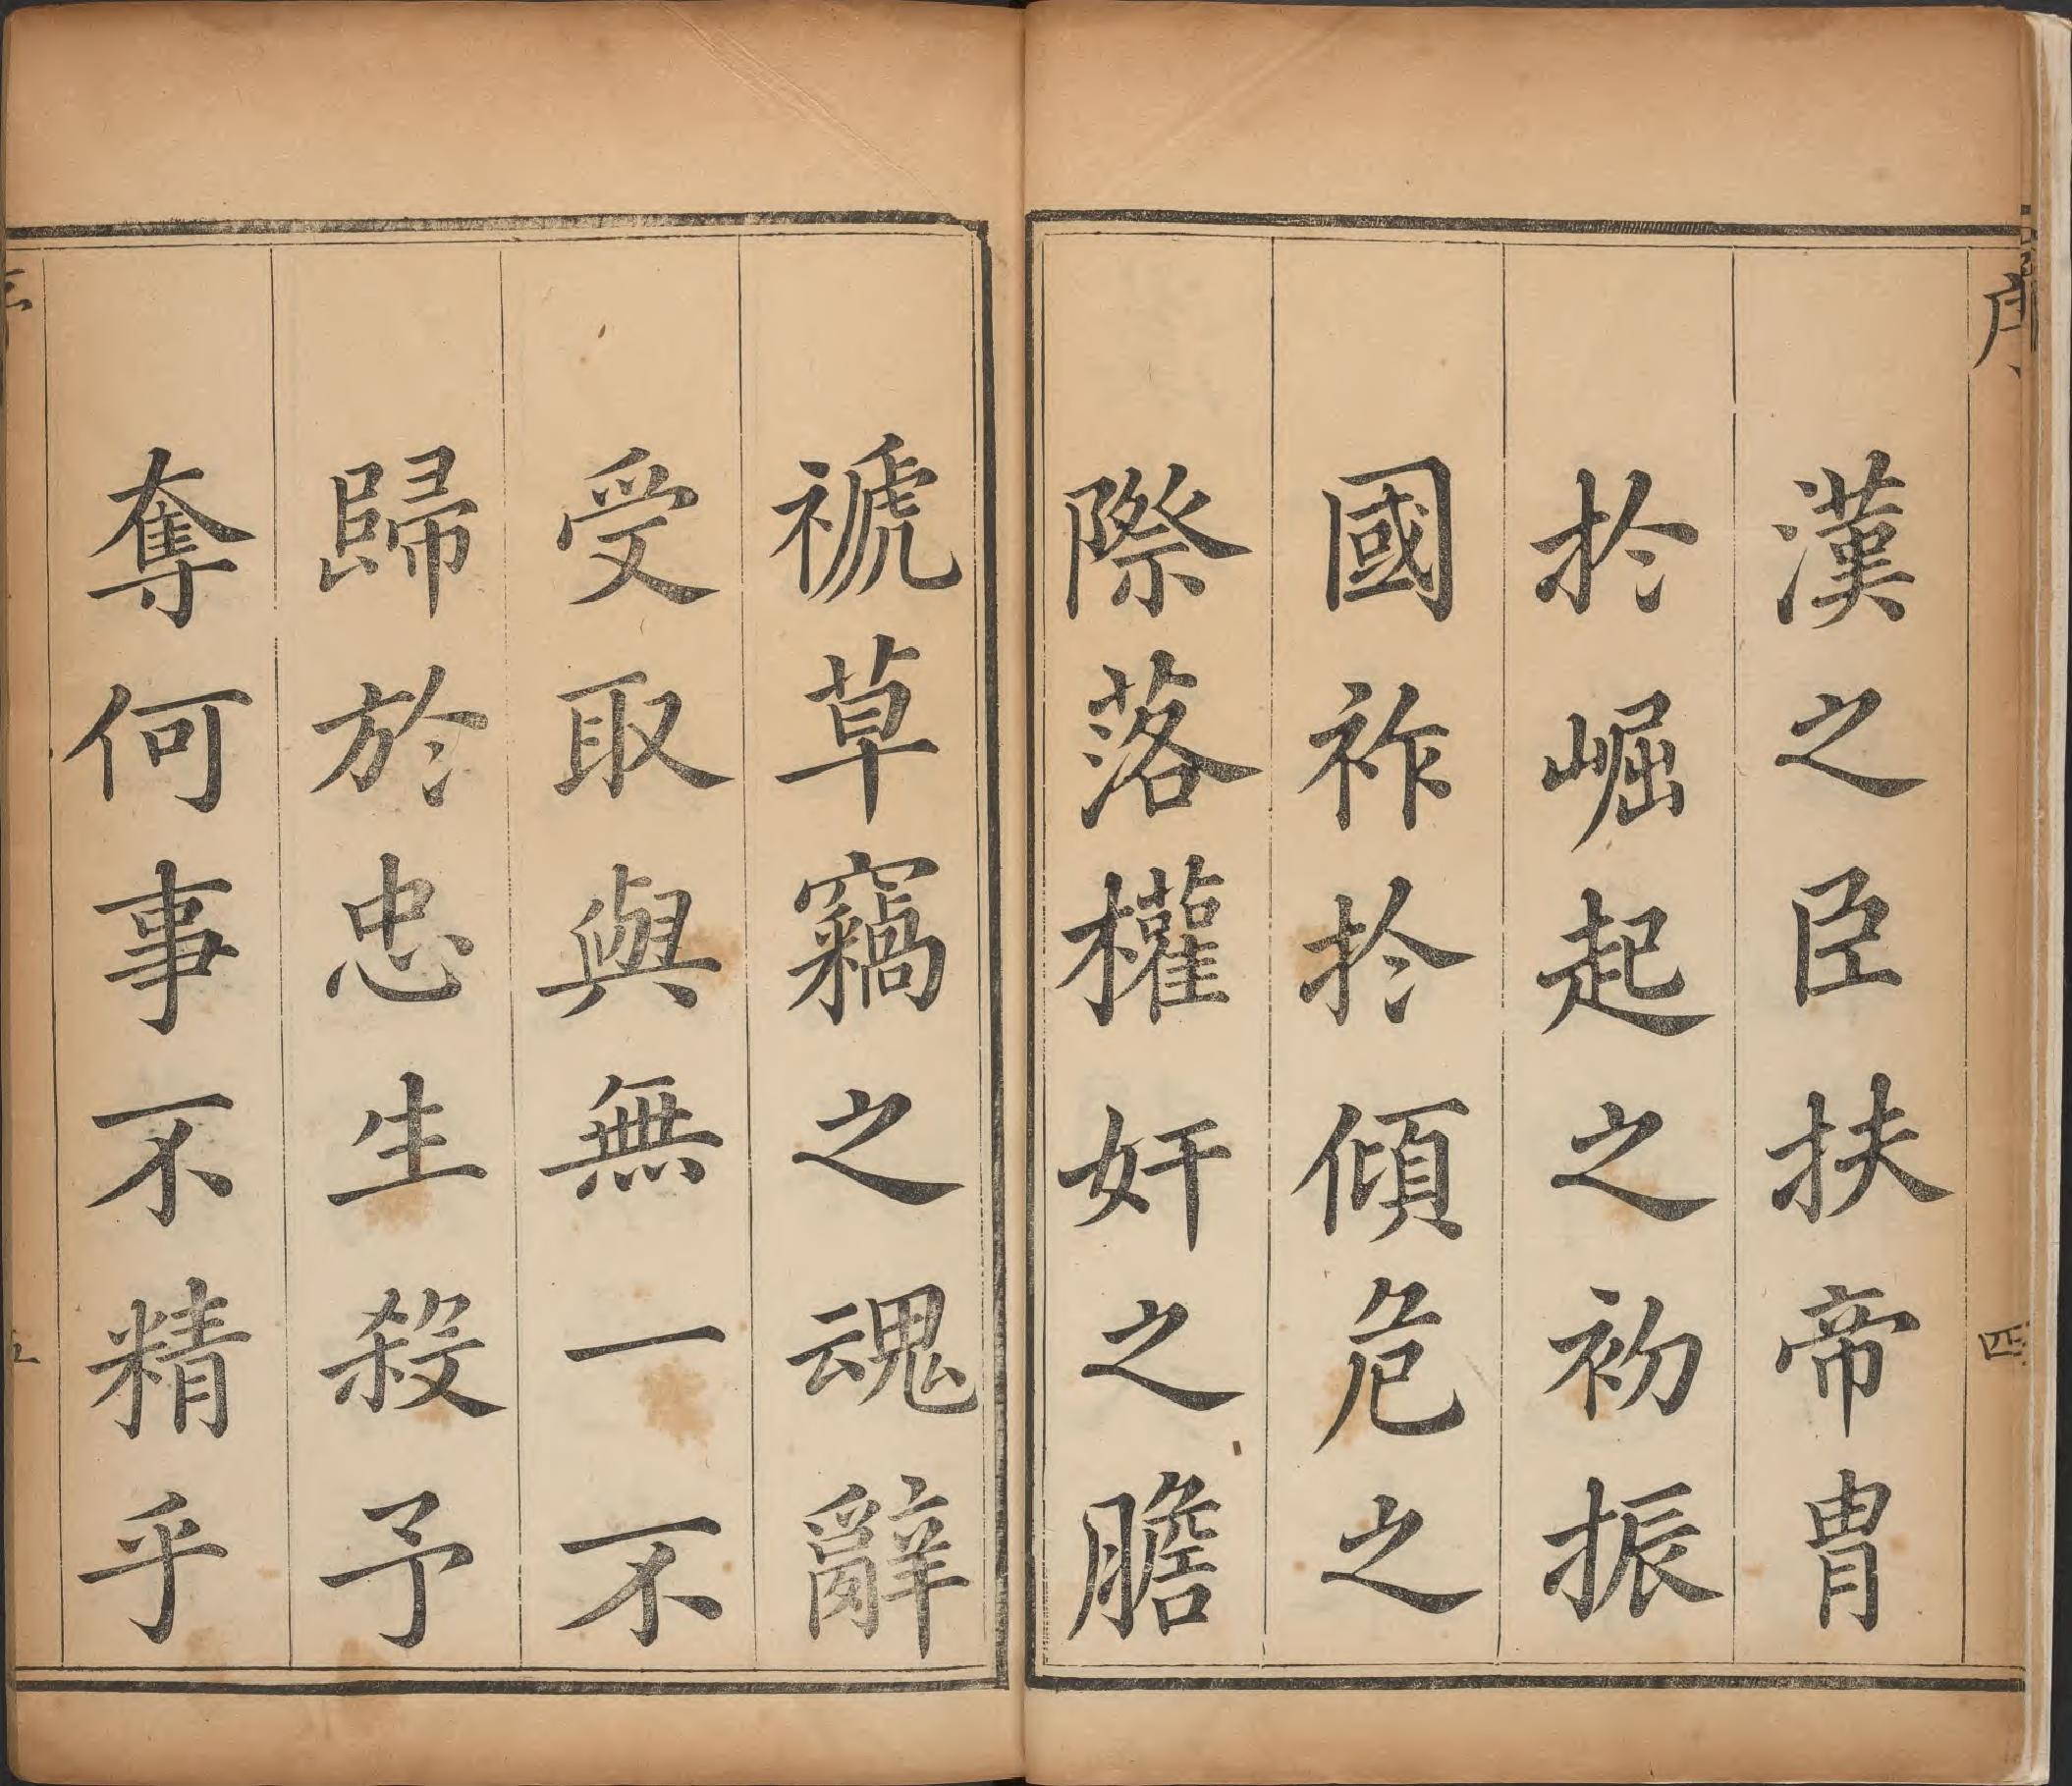 序
四
漢之臣扶帝胄
於崛起之初振
國祚於傾危之
際落權奸之膽
褫草竊之魂辭
受取與無一不
歸於忠生殺予
奪何事不精乎